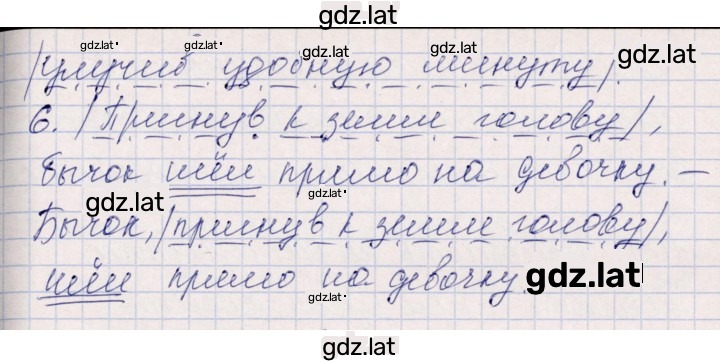 gdz.lat
gdz.lat
gdz.lat
gdz.lat
gdz.lat
|улучив удобную минуту|.
6. |Пригнув к земле голову|,
бычок шёл прямо на девочку. –
gdz.lat
gdz.lat
Бычок, |пригнув к земле голову|,
шёл прямо на девочку.
gdz.lat
gdz.lat
gdz.lat